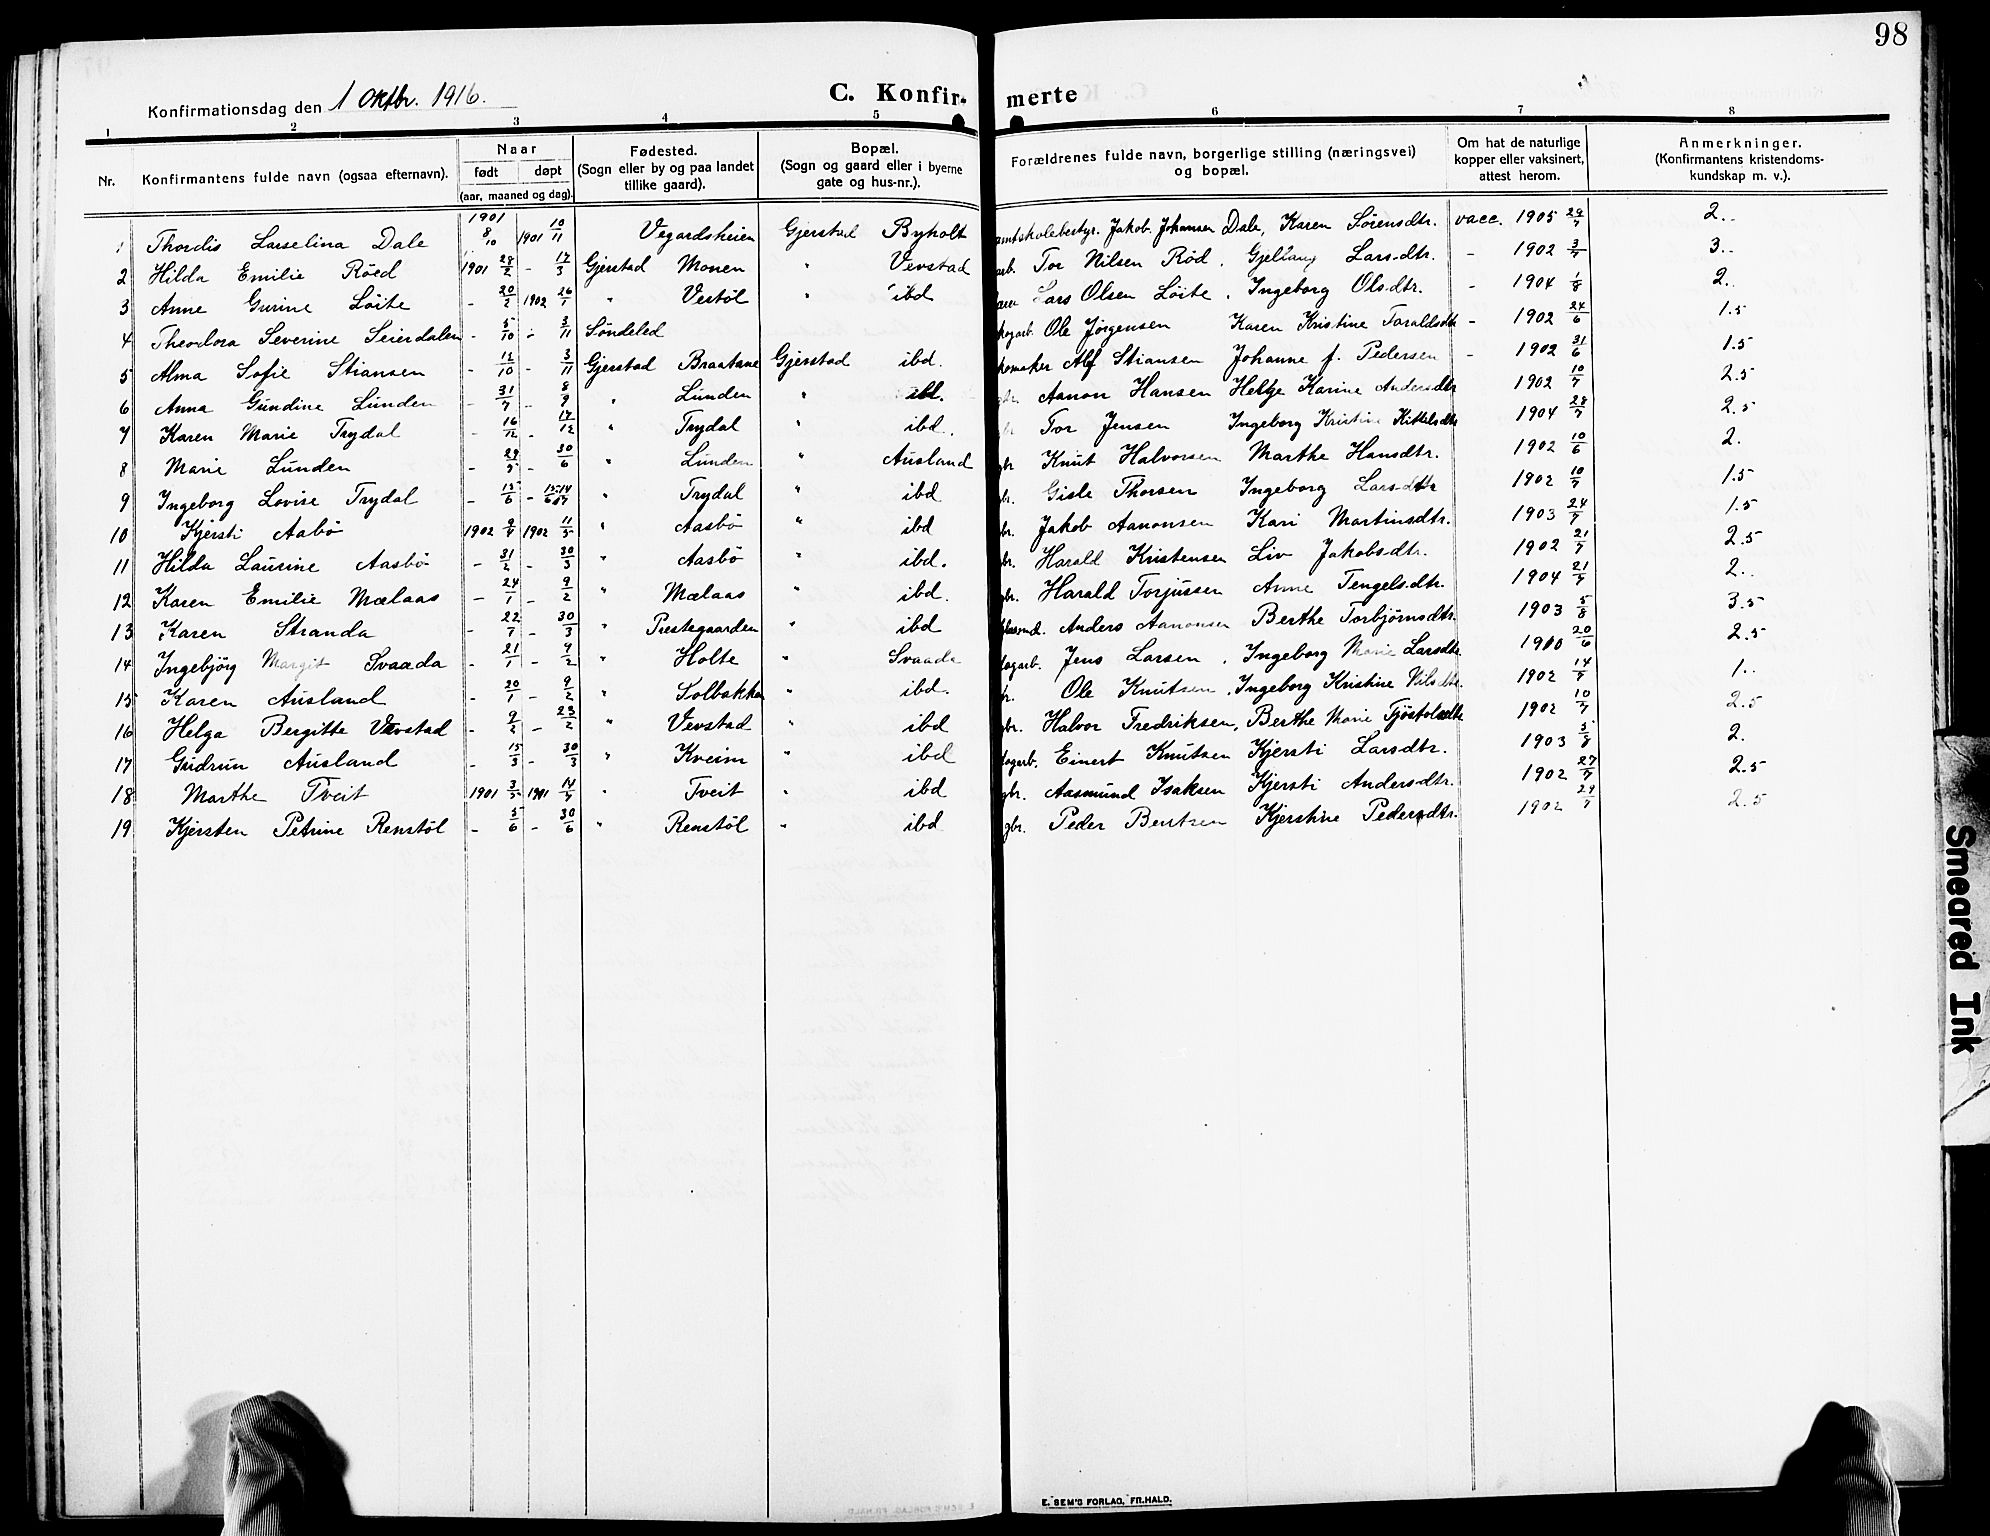 98
Konfirmationsdag den 1 Oktbr. 1916.
C. Konfirmerte
1 2 3 4 5 6 7 8
Nr.
Konfirmantens fulde navn (ogsaa efternavn).
Naar
født døpt
(aar, maaned og dag).
Fødested.
(Sogn eller by og paa landet
tillike gaard).
Bopæl.
(Sogn og gaard eller i byerne
gate og hus-nr.).
Forældrenes fulde navn, borgerlige stilling (næringsvei)
og bopæl.
Om hat de naturlige
kopper eller vaksinert,
attest herom.
Anmerkninger.
(Konfirmantens kristendoms-
kundskap m. v.).
1 Thordis Larselina Dale 1901 8/10 1901 10/11 Vegardsheien Gjerstad Byholt amtskolebestyr. Jakob Johansen Dale, Karen Sörensdtr. vacc. 1905 29/7 2..
2 Hilda Emilie Röed 1901 28/2 - 17/3 Gjerstad Monen " Vevstad arb. Tor Nilsen Röd. Lars.dtr. - 1902 3/7 3..
3 Anne Gurine Löite - 20/2 1902 26/1 " Vestöl " ibd Lars Olsen Löite. Ingeborg Ols.dtr. - 1904 1/8 2.
4 Theodora Severine Seierdalen - 5/10 - 3/11 Söndeled skogarb. Ole Jörgensen Karen Kristine Taraldsdtr - 1902 24/6 1.5
5 Alma Sofie Stiansen - 12/10 - 3/11 Gjerstad Braatane Gjerstad ibd. skomaker Alf Stiansen Johanne f. Pedersen - 1902 31/6 1.5
6 Anna Gundine Lunden - 31/7 - 8/9 " Lunden " ibd. gbr. Aanon Hansen Helge Karine Andersdtr 1902 10/7 2.5
7 Karen Marie Trydal - 16/12 - 17/12 " Trydal " ibd. gbr Tor Jensen Ingeborg Kristine Kittelsdtr 1904 28/7 2.5
8 Marie Lunden - 29/5 - 30/6 " Lunden " Ausland gbr. Knut Halvorsen Marthe Hansdtr. 1902 10/6 2.
9 Ingeborg Lovise Trydal - 15/6 - 14/7 " Trydal " ibd gbr. Gisle Thorsen Ingeborg Lars.dtr 1902 10/7 1.5
10 Kjersti Aabö 1902 9/4 1902 11/5 " Aasbö " ibd gbr. Jakob Aanonsen Kari Martinsdtr. 1903 24/7 1.5
11 Hilda Laurine Aasbö - 31/2 - 30/3 " Aasbö " ibd. gbr. Harald Kristensen Liv Jakobsdtr. 1902 21/7 2.5
12 Karen Emilie Mælaas - 24/1 - 9/2 " Mælaas " ibd. gbr. Harald Torjussen Anne Tengels.dtr. 1904 21/7 2..
13 Karen Stranda - 22/7 - 30/3 " Prestegaarden " ibd Anders Aanonsen Berthe Torbjörnsdtr. 1903 5/8 3.5
14 Ingebjörg Margit Svaada - 21/1 - 9/2 " Holte " Svaada skogarb. Jens Larsen. Ingeborg Marie Larsdtr. 1910 20/6 2.5
15 Karen Ausland - 20/1 - 9/2 " Solbakken " ibd. gbr. Ole Knutsen. Ingeborg Kristine Nilsdtr. 1902 14/7 1..
16 Helga Bergitte Vevstad - 9/2 - 23/2 " Vevstad " ibd gbr. Halvor Fredriksen, Berthe Marie Tjöstolsdtr 1902 10/7 2.5
17 Gudrun Ausland - 15/3 - 30/3 " Kveim " ibd skogarb. Einert Knutsen Kjersti Larsdtr. 1903 5/8 2.
18 Marthe Tveit 1901 3/5 1901 14/7 " Tveit " ibd gbr. Aasmund Isaksen Kjersti Andersdtr. 1902 27/7 2.5
19 Kjersten Petrine Renstöl - 5/6 - 30/6 " Renstöl " ibd gbr. Peder Bentsen Kjerstine Pedersdtr. 1902 29/7 2.5
E. SEM'S FORLAG, FR.HALD.
Smeared Ink